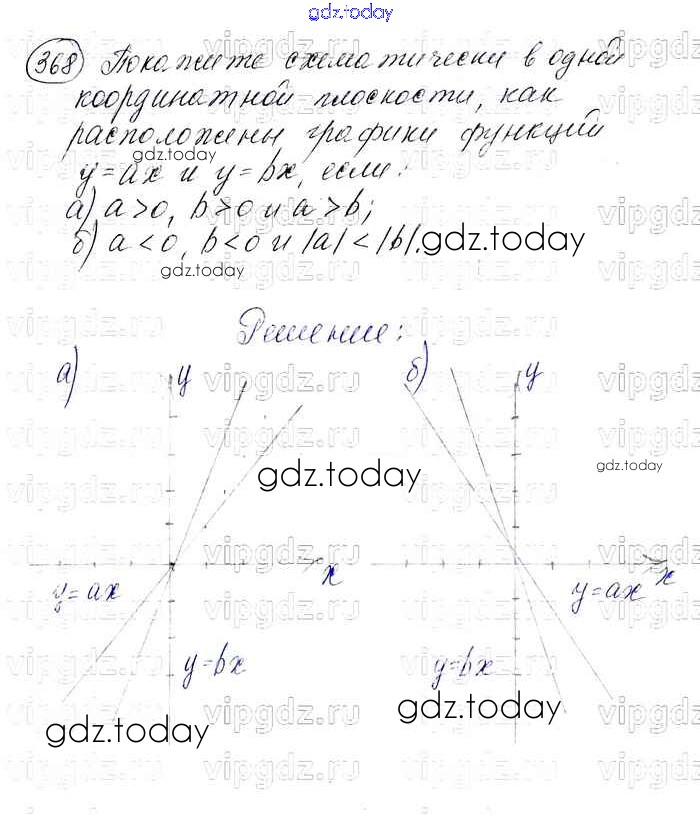 gdz.today
368 Покажите схематически в одной
координатной плоскости, как
расположены графики функций
gdz.today
y=ax и y=bx, если:
а) a>0, b>0 и a>b;
б) a<0, b<0 и |a|<|b|.
gdz.today
gdz.today
Решение:
а) y
б) y
gdz.today
gdz.today
x
x
y=ax
y=ax
y=bx
y=bx
gdz.today
gdz.today
vipgdz.ru vipgdz.ru vipgdz.ru vipgdz.ru